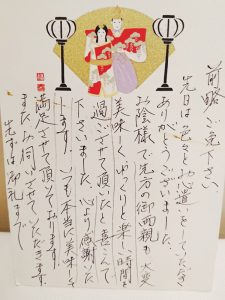 前略ご免下さい
先日は色々とお心遣いをしていただき
ありがとうございました。
お陰様で先方の御両親も大変
美味しくゆっくりと楽しい時間を
過ごさせて頂いたと喜んで
下さいました。心より感謝いた
します。いつも本当に美味しく
満足させて頂いております。
またお伺いさせていただきます。
先ずは御礼まで